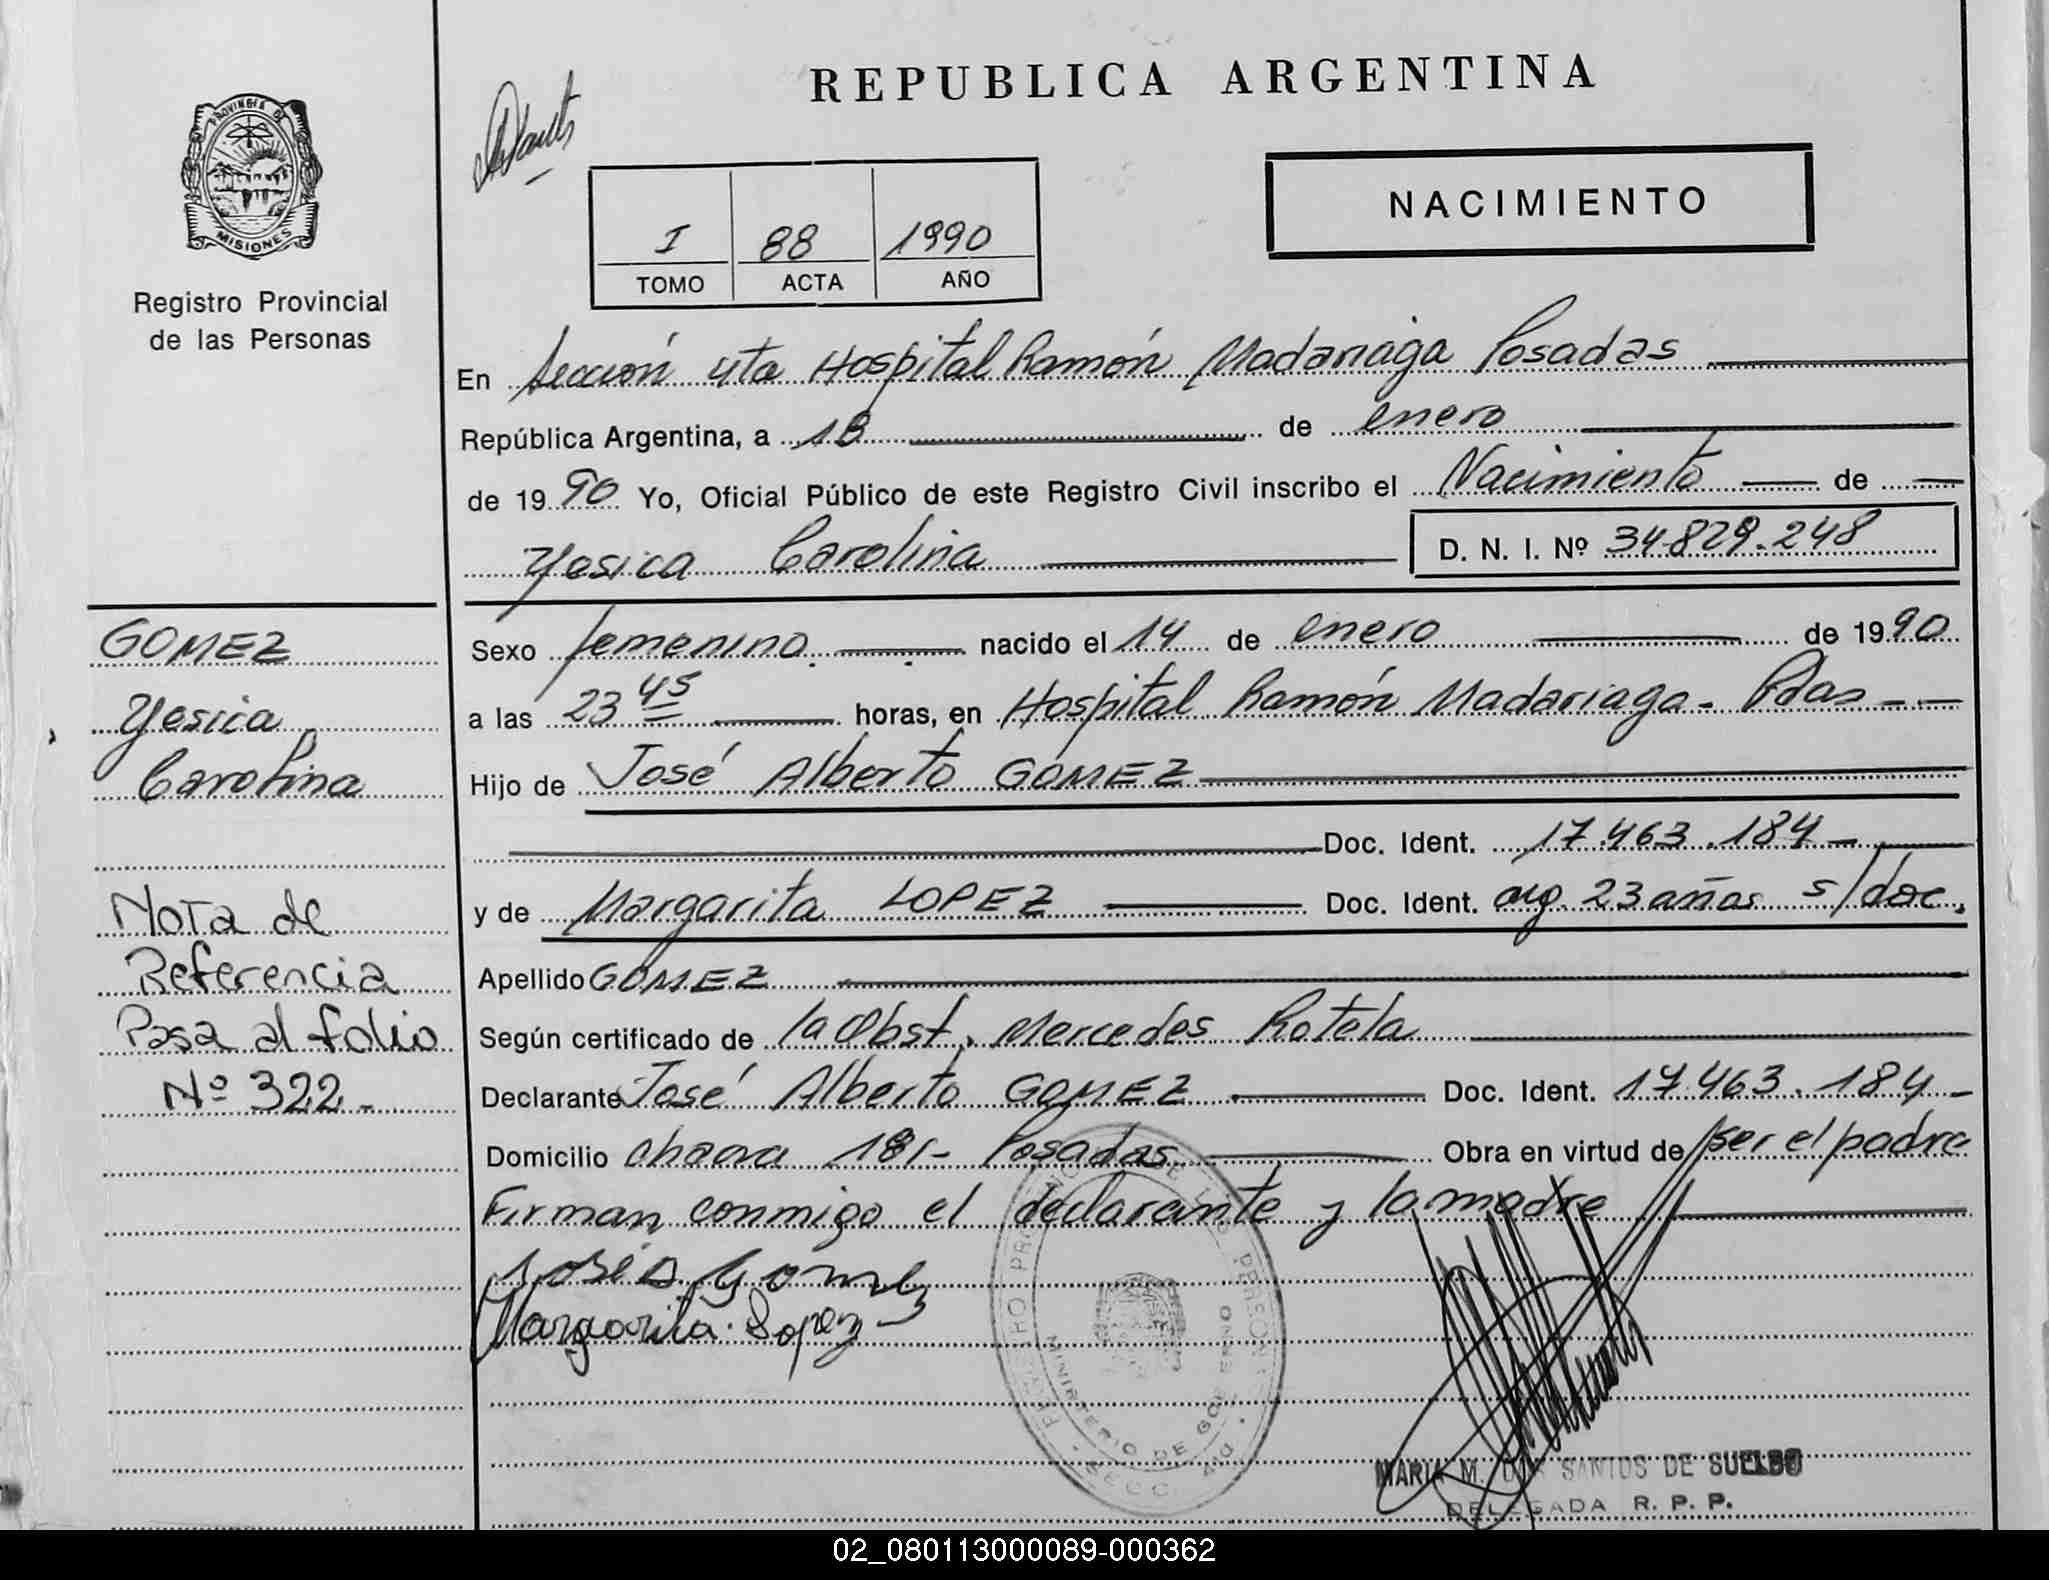 REPUBLICA ARGENTINA
PROVINCIA DE
MISIONES
Registro Provincial
de las Personas
NACIMIENTO
I 88 1990
TOMO ACTA AÑO
En Sección 4ta Hospital Ramón Madariaga Posadas
República Argentina, a 18 de enero
de 1990 Yo, Oficial Público de este Registro Civil inscribo el Nacimiento de
Yesica Carolina D. N. I. Nº 34.829.248
GOMEZ
Yesica
Carolina
Nota de
Referencia
Pasa al folio
Nº 322-
Sexo femenino nacido el 14 de enero de 1990
a las 23 45 horas, en Hospital Ramón Madariaga - Pdas - -
Hijo de José Alberto GOMEZ
Doc. Ident. 17.463.184 -
y de Margarita LOPEZ Doc. Ident. arg. 23 años s/doc.
Apellido GOMEZ
Según certificado de la Obst. Mercedes Rotela
Declarante José Alberto GOMEZ Doc. Ident. 17.463.184 -
Domicilio chacra 181- Posadas Obra en virtud de ser el padre
Firman conmigo el declarante y la madre
José A. Gomez
Margarita Lopez
REGISTRO PROVINCIAL DE LAS PERSONAS
MINISTERIO DE GOBIERNO
SECC. 4ta
MARIA M. DOS SANTOS DE SUELDO
DELEGADA R. P. P.
02_080113000089-000362